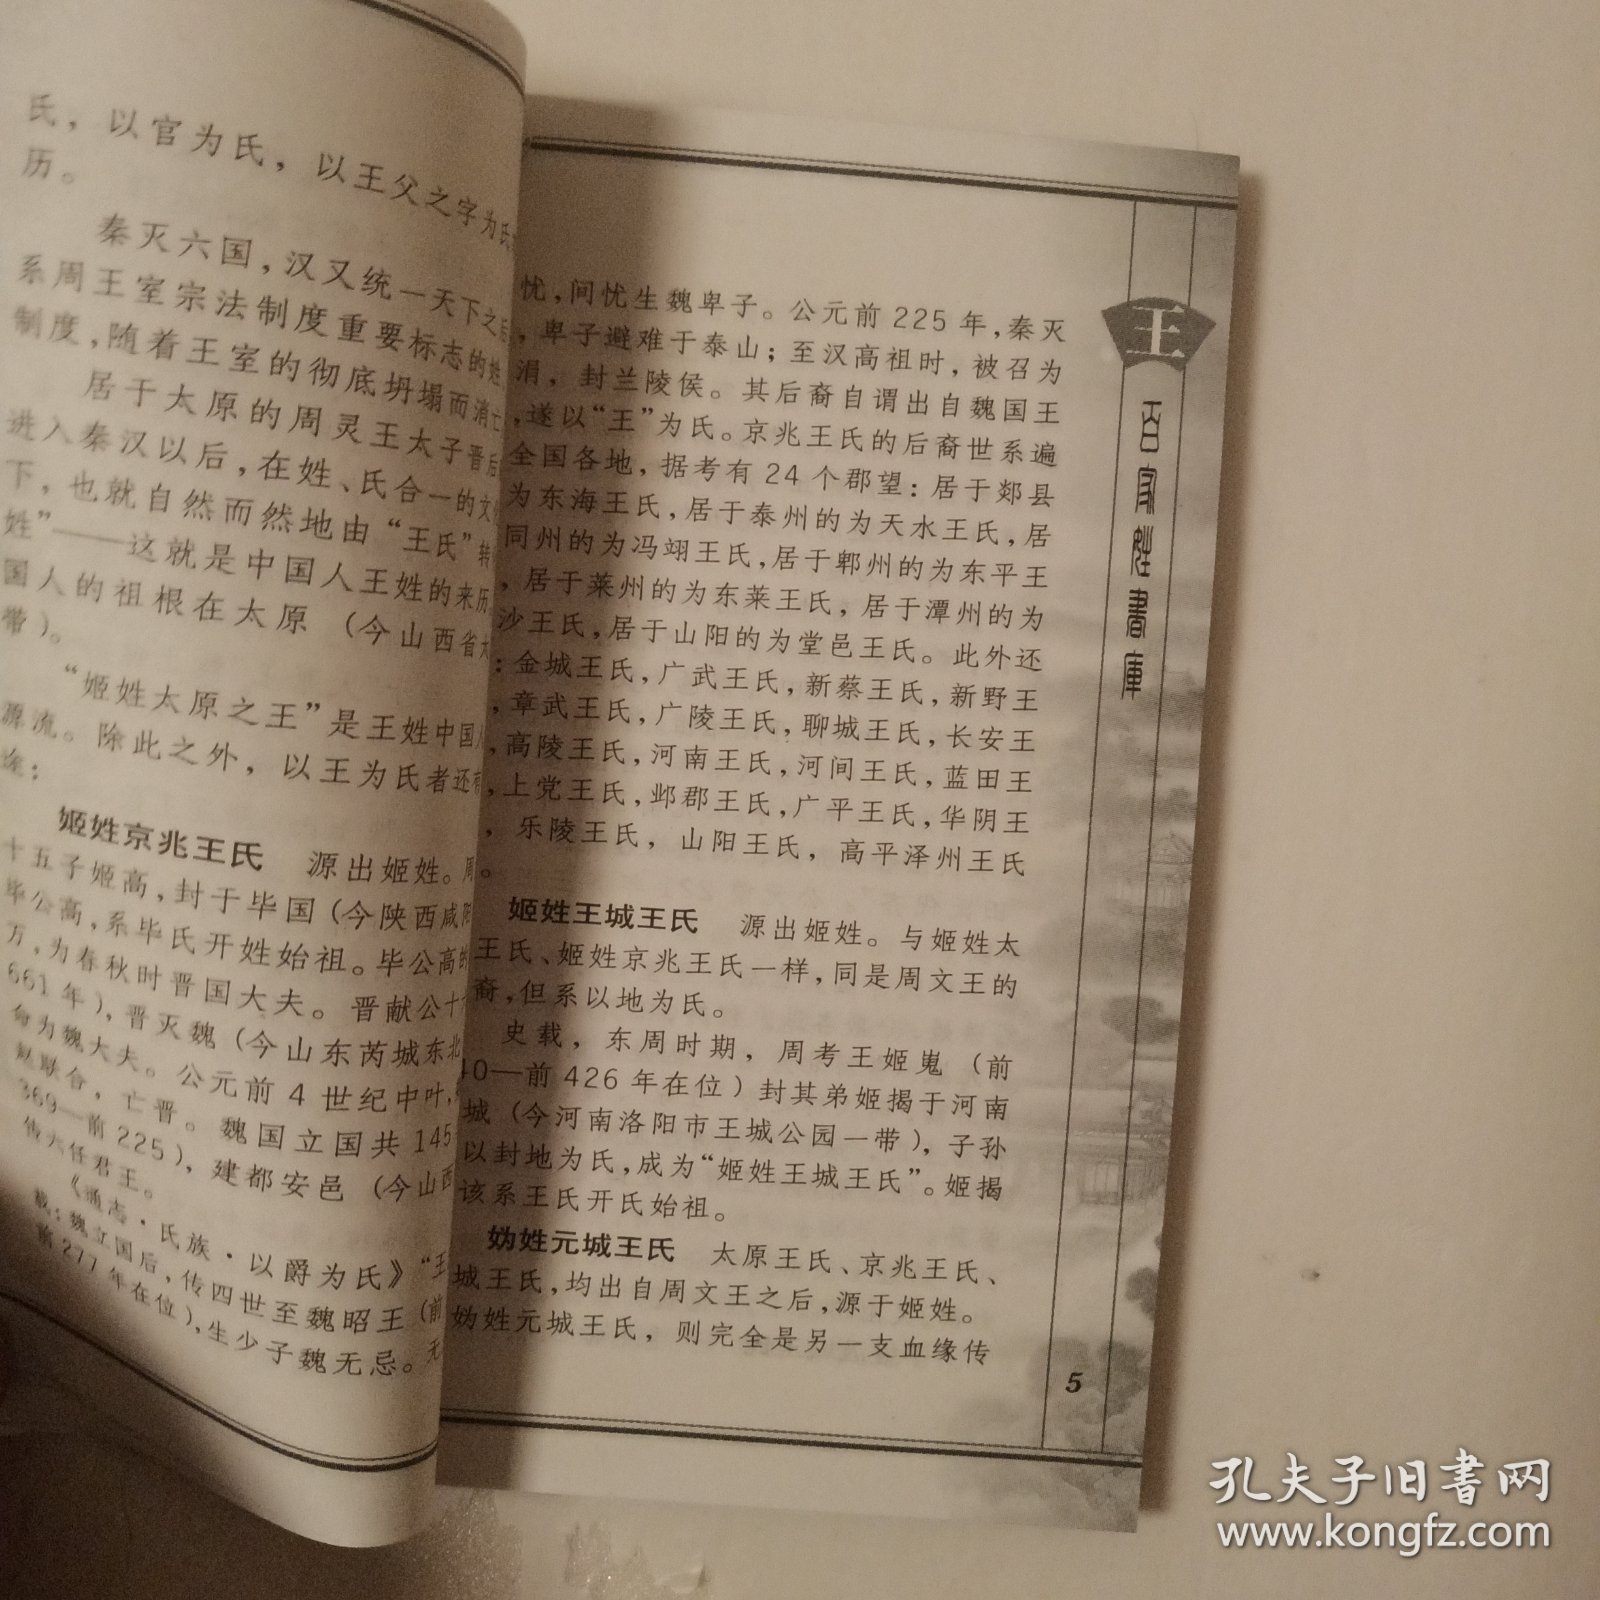 氏，以官为氏，以王父之字为氏
历。
秦灭六国，汉又统一天下之后
系周王室宗法制度重要标志的姓
制度，随着王室的彻底坍塌而消亡
居于太原的周灵王太子晋后
进入秦汉以后，在姓、氏合一的文
下，也就自然而然地由“王氏”转
姓”——这就是中国人王姓的来历
国人的祖根在太原（今山西省太
带）。
“姬姓太原之王”是王姓中国人
源流。除此之外，以王为氏者还有
途：
姬姓京兆王氏 源出姬姓。周
十五子姬高，封于毕国（今陕西咸阳
毕公高，系毕氏开姓始祖。毕公高的
万，为春秋时晋国大夫。晋献公十
661年），晋灭魏（今山东芮城东北
为魏大夫。公元前4世纪中叶，
赵联合，亡晋。魏国立国共145
369—前225），建都安邑（今山西
传六任君王。
《通志·氏族·以爵为氏》“王
载：魏立国后，传四世至魏昭王（前
前277年在位），生少子魏无忌。无
忧，间忧生魏卑子。公元前225年，秦灭
，卑子避难于泰山；至汉高祖时，被召为
涓，封兰陵侯。其后裔自谓出自魏国王
，遂以“王”为氏。京兆王氏的后裔世系遍
全国各地，据考有24个郡望：居于郯县
为东海王氏，居于泰州的为天水王氏，居
同州的为冯翊王氏，居于郓州的为东平王
，居于莱州的为东莱王氏，居于潭州的为
沙王氏，居于山阳的为堂邑王氏。此外还
：金城王氏，广武王氏，新蔡王氏，新野王
，章武王氏，广陵王氏，聊城王氏，长安王
，高陵王氏，河南王氏，河间王氏，蓝田王
，上党王氏，邺郡王氏，广平王氏，华阴王
，乐陵王氏，山阳王氏，高平泽州王氏
。
姬姓王城王氏 源出姬姓。与姬姓太
王氏、姬姓京兆王氏一样，同是周文王的
裔，但系以地为氏。
史载，东周时期，周考王姬嵬（前
40—前426年在位）封其弟姬揭于河南
城（今河南洛阳市王城公园一带），子孙
以封地为氏，成为“姬姓王城王氏”。姬揭
该系王氏开氏始祖。
妫姓元城王氏 太原王氏、京兆王氏、
城王氏，均出自周文王之后，源于姬姓。
妫姓元城王氏，则完全是另一支血缘传
王
百家姓書庫
5
孔夫子旧书网
www.kongfz.com